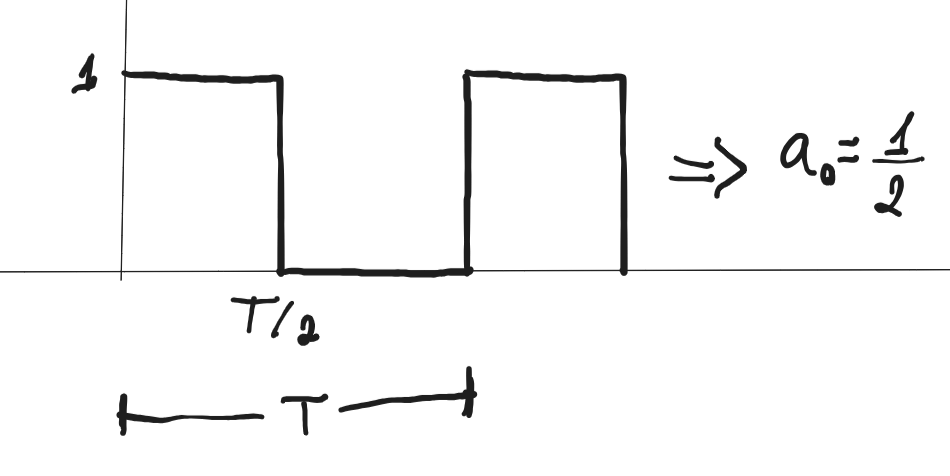 1
⇒ a₀ = 1/2
T/2
T